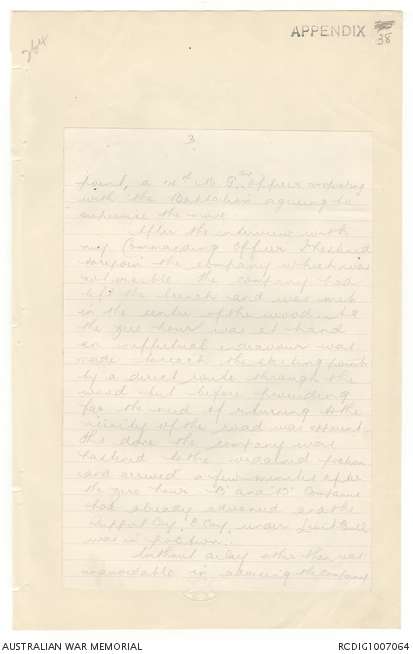 APPENDIX
38
264
3
point, a
with the Battalion agreeing to
supervise the move.
After the interview with
my Commanding Officer I hastened
to rejoin the company which was
the company had
left the trench and was met
in the centre of the wood. As
the zero hour was at hand
an ineffectual endeavour was
made to reach the starting point
by a direct route through the
wood but before proceeding
far the need of returning to the
vicinity of the road was apparent.
This done the company were
hastened to the required position
and arrived a few minutes after
the zero hour. "B" and "D" Companies
had already advanced and the
Support Coy. "C" Coy. under Lieut
was in position.
Without delay other than was
unavoidable in advancing the company
AUSTRALIAN WAR MEMORIAL
RCDIG1007064